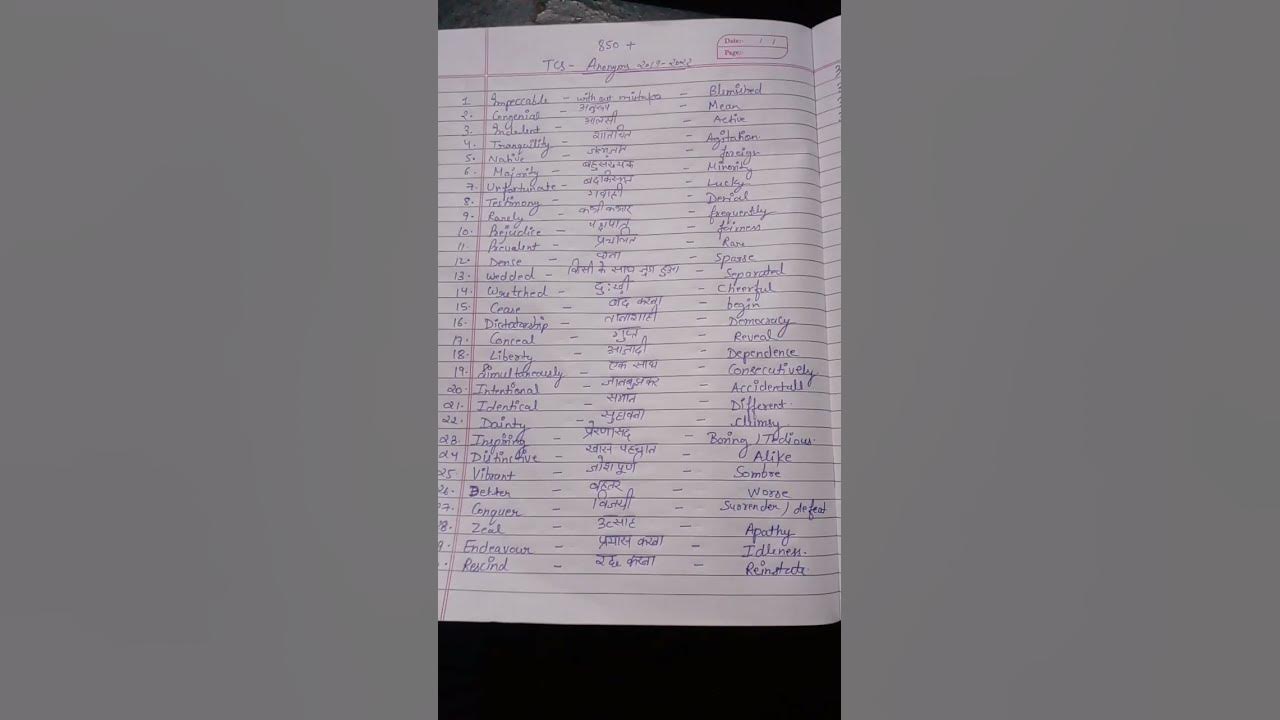 850 +
Date: / /
Page:
TCS - Anonyms 2019-2022
1 Impeccable - without mistakes - Blemished
2. Congenial - अनुरूप - Mean
3. Indolent - आलसी - Active
4. Tranquility - शातचित - Agitation.
5. Native - - foreign
6. Majority - बहुसंख्यक - Minority
7. Unfortunate - बदकिस्मत - Lucky
8. Testimony - गवाही - Denial
9. Rarely - कभी कभार - frequently
10. Prejudice - पक्षपात - fairness
11. Prevalent - प्रचलित - Rare
12. Dense - घना - Sparse
13. Wedded - किसी के साथ जुडा हुआ - Separated
14. Wretched - दुःखी - Cheerful
15. Cease - बंद करना - begin
16. Dictatorship - तानाशाही - Democracy
17. Conceal - गुप्त - Reveal
18. Liberty - आजादी - Dependence
19. Simultaneously - एक साथ - Consecutively
20 Intentional - जानबुझकर - Accidentall
21. Identical - समान - Different.
22. Dainty - सुहावना - Clumsy
23. Inspiring - प्रेरणासद - Boring / Tedious.
24 Distinctive - खास पहचान - Alike
25. Vibrant - जोशपूर्ण - Sombre
26. Better - बेहतर - Worse
27. Conquer - विजयी - Surrender / defeat
28. Zeal - उत्साह - Apathy
9. Endeavour - प्रयास करना - Idleness.
Rescind - रद्द करना - Reinstate.